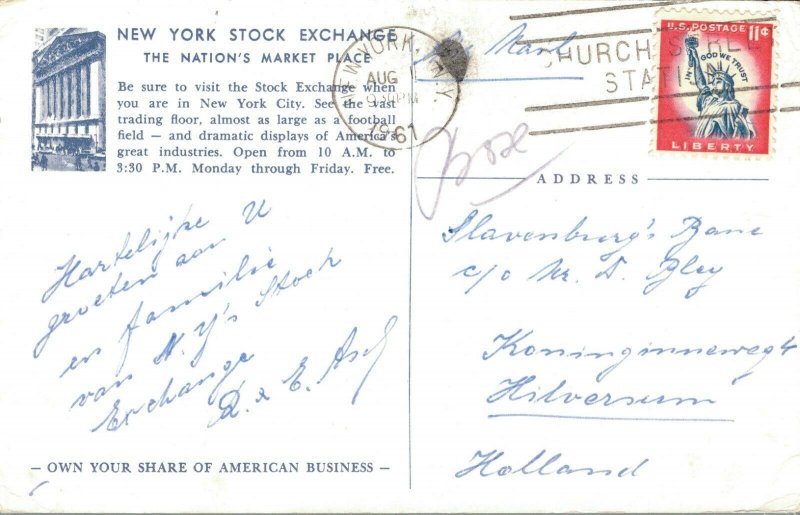 NEW YORK STOCK EXCHANGE
THE NATION'S MARKET PLACE
Be sure to visit the Stock Exchange when
you are in New York City. See the vast
trading floor, almost as large as a football
field — and dramatic displays of America's
great industries. Open from 10 A.M. to
3:30 P.M. Monday through Friday. Free.
Hartelijke
groeten aan U
en familie
van N.Y's Stock
Exchange
R. & E. Asch
— OWN YOUR SHARE OF AMERICAN BUSINESS —
NEW YORK, N.Y.
AUG 1
9:30 PM
1961
CHURCH STREET
STATION
U.S. POSTAGE 11¢
IN GOD WE TRUST
LIBERTY
ADDRESS
Slavenburg's Bank
c/o Mr. D. Bley
Koninginneweg 4
Hilversum
Holland